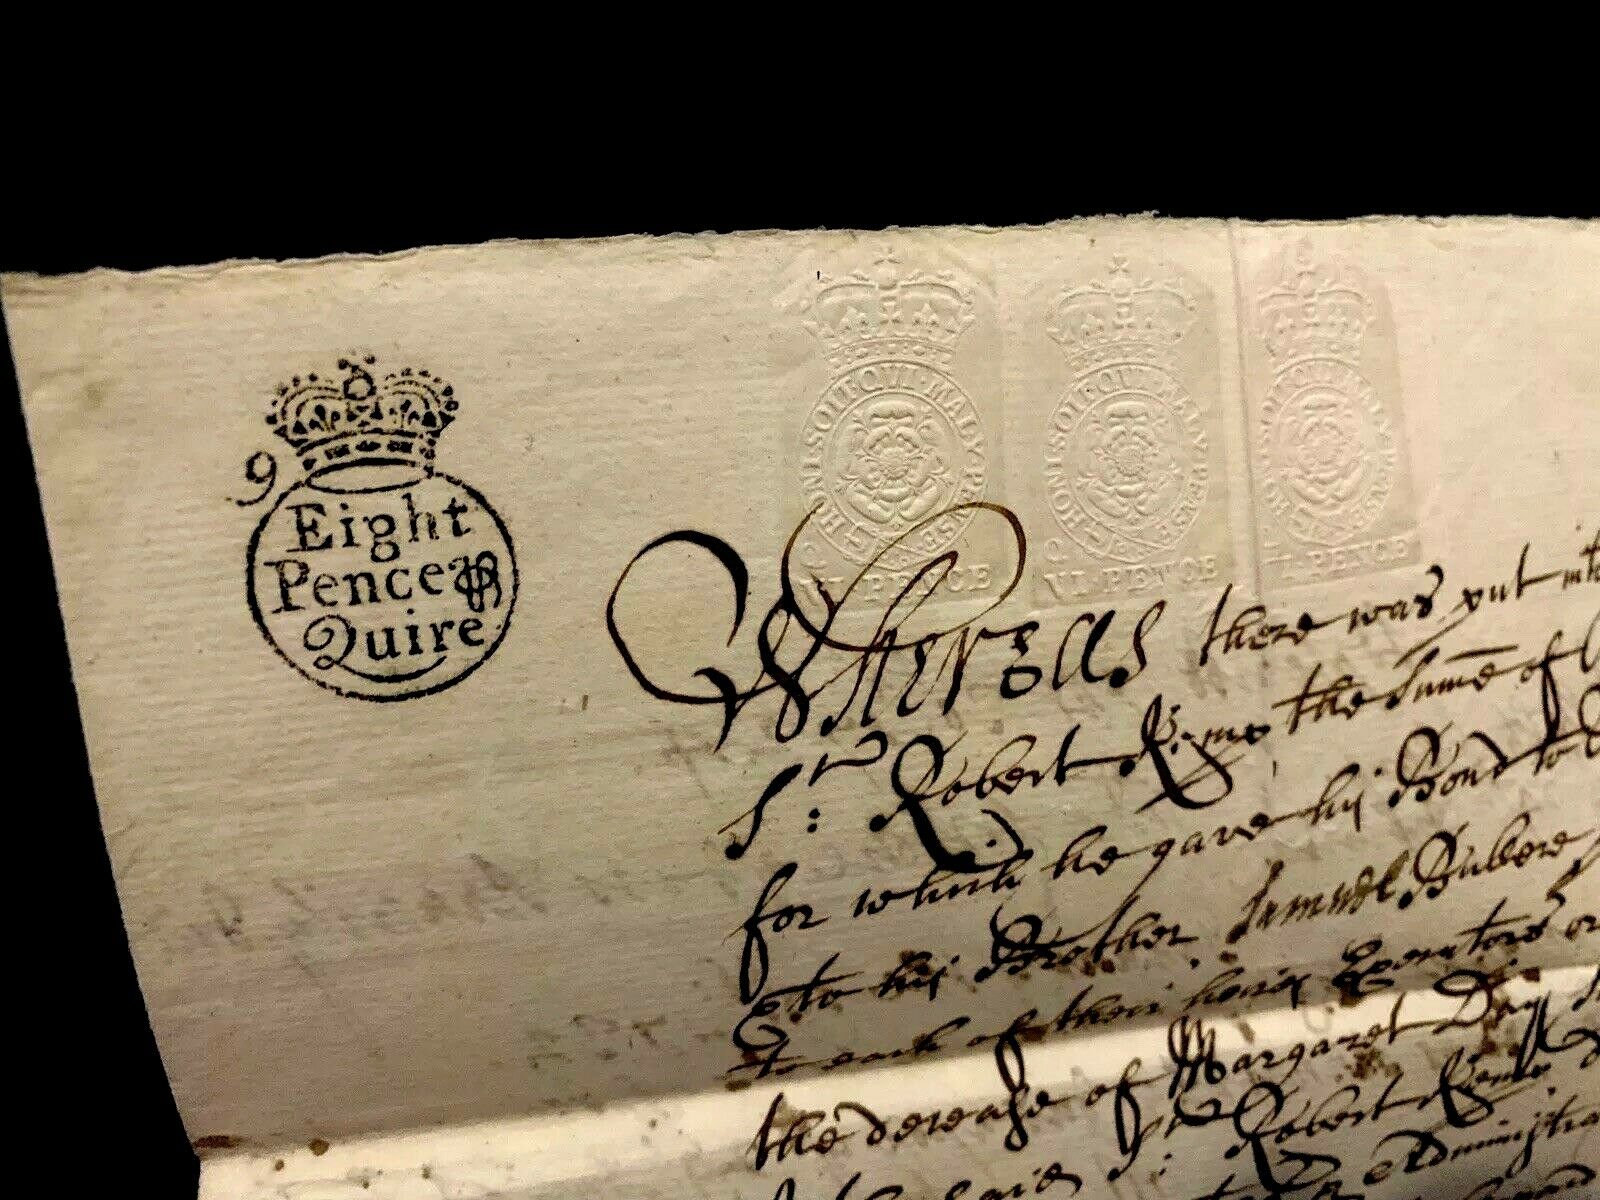 9
Eight
Pence ⅌
Quire
HONI·SOIT·QVI·MAL·Y·PENSE
VI·PENCE
HONI·SOIT·QVI·MAL·Y·PENSE
VI·PENCE
HONI·SOIT·QVI·MAL·Y·PENSE
VI·PENCE
Whereas there was put into
Sr: Robert the Sume of
for which he gave his Bond to
to his Brother Samuel
to each of their heires Executors or
the decease of Margaret Day
said Sr: Robert
Administra